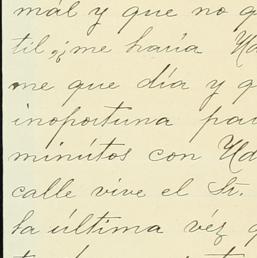 mál y que no q
til, ¿me haría Ud
me que día y q
inoportuna pa
minútos con Ud
calle vive el Sr.
la última véz q